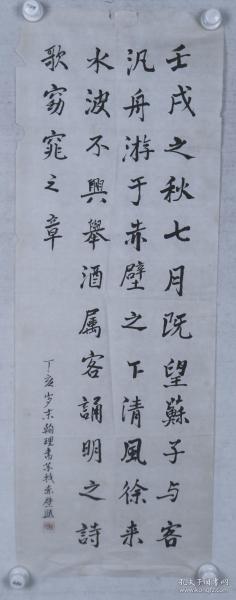 壬戌之秋七月既望蘇子与客
汎舟游于赤壁之下清風徐来
水波不興舉酒属客誦明之詩
歌窈窕之章
丁亥岁末翰理书苏轼赤壁赋
孔夫子旧书网